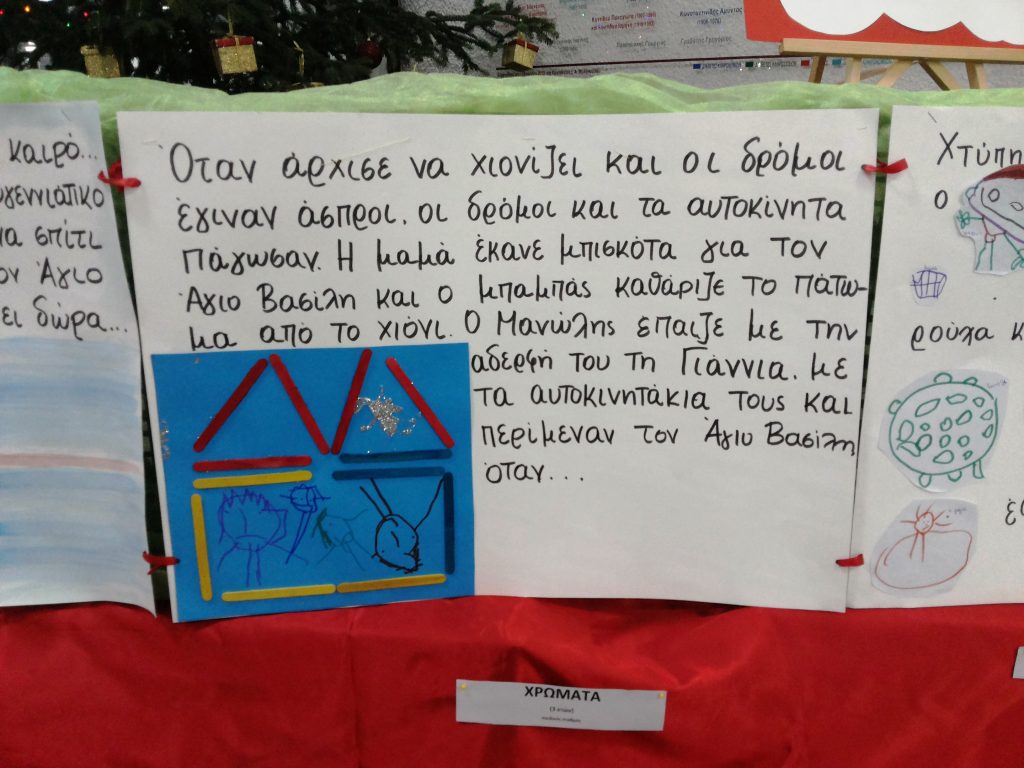 καιρό...
σπίτι
Άγιο
δώρα...
Όταν άρχισε να χιονίζει και οι δρόμοι
έγιναν άσπροι, οι δρόμοι και τα αυτοκίνητα
πάγωσαν. Η μαμά έκανε μπισκότα για τον
Άγιο Βασίλη και ο μπαμπάς καθάριζε το πάτω-
μα από το χιόνι. Ο Μανώλης έπαιζε με την
αδερφή του τη Γιάννια, με
τα αυτοκινητάκια τους και
περίμεναν τον Άγιο Βασίλη
όταν...
Χτύπη
ο
ρούχα κ
ΧΡΩΜΑΤΑ
(3 ετών)